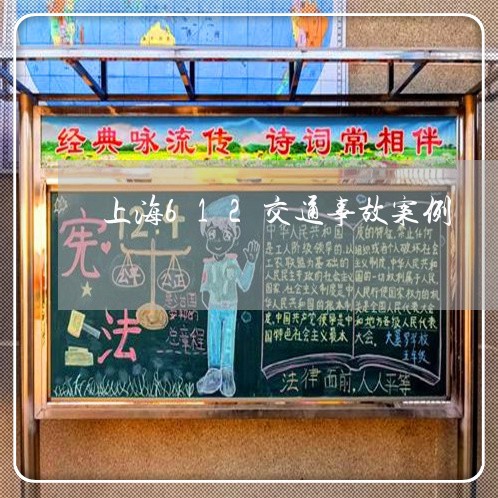 经典咏流传 诗词常相伴
上海612交通事故案例
宪法
12 4
公平 公正
总章程
中华人民共和国
是工人阶级领导的,以
工农联盟为基础的
人民民主专政的社会主义
国家,社会主义制度是中
华人民共和国的根本制
度,中国共产党领导是中
国特色社会主义最本
质的特征,禁止任何
组织或者个人破坏社会
主义制度,中华人民共和
国的一切权利属于人民,
人民行使国家权力的机
关是全国人民代表大会
和地方各级人民代表
大会。
五年级
法律面前,人人平等